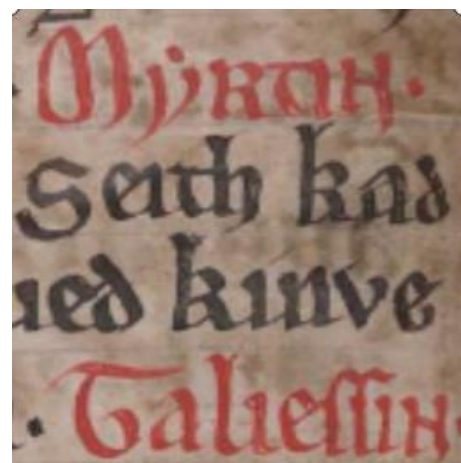 Myrtin.
Seith kad
ued kinve
. Talieſſin.